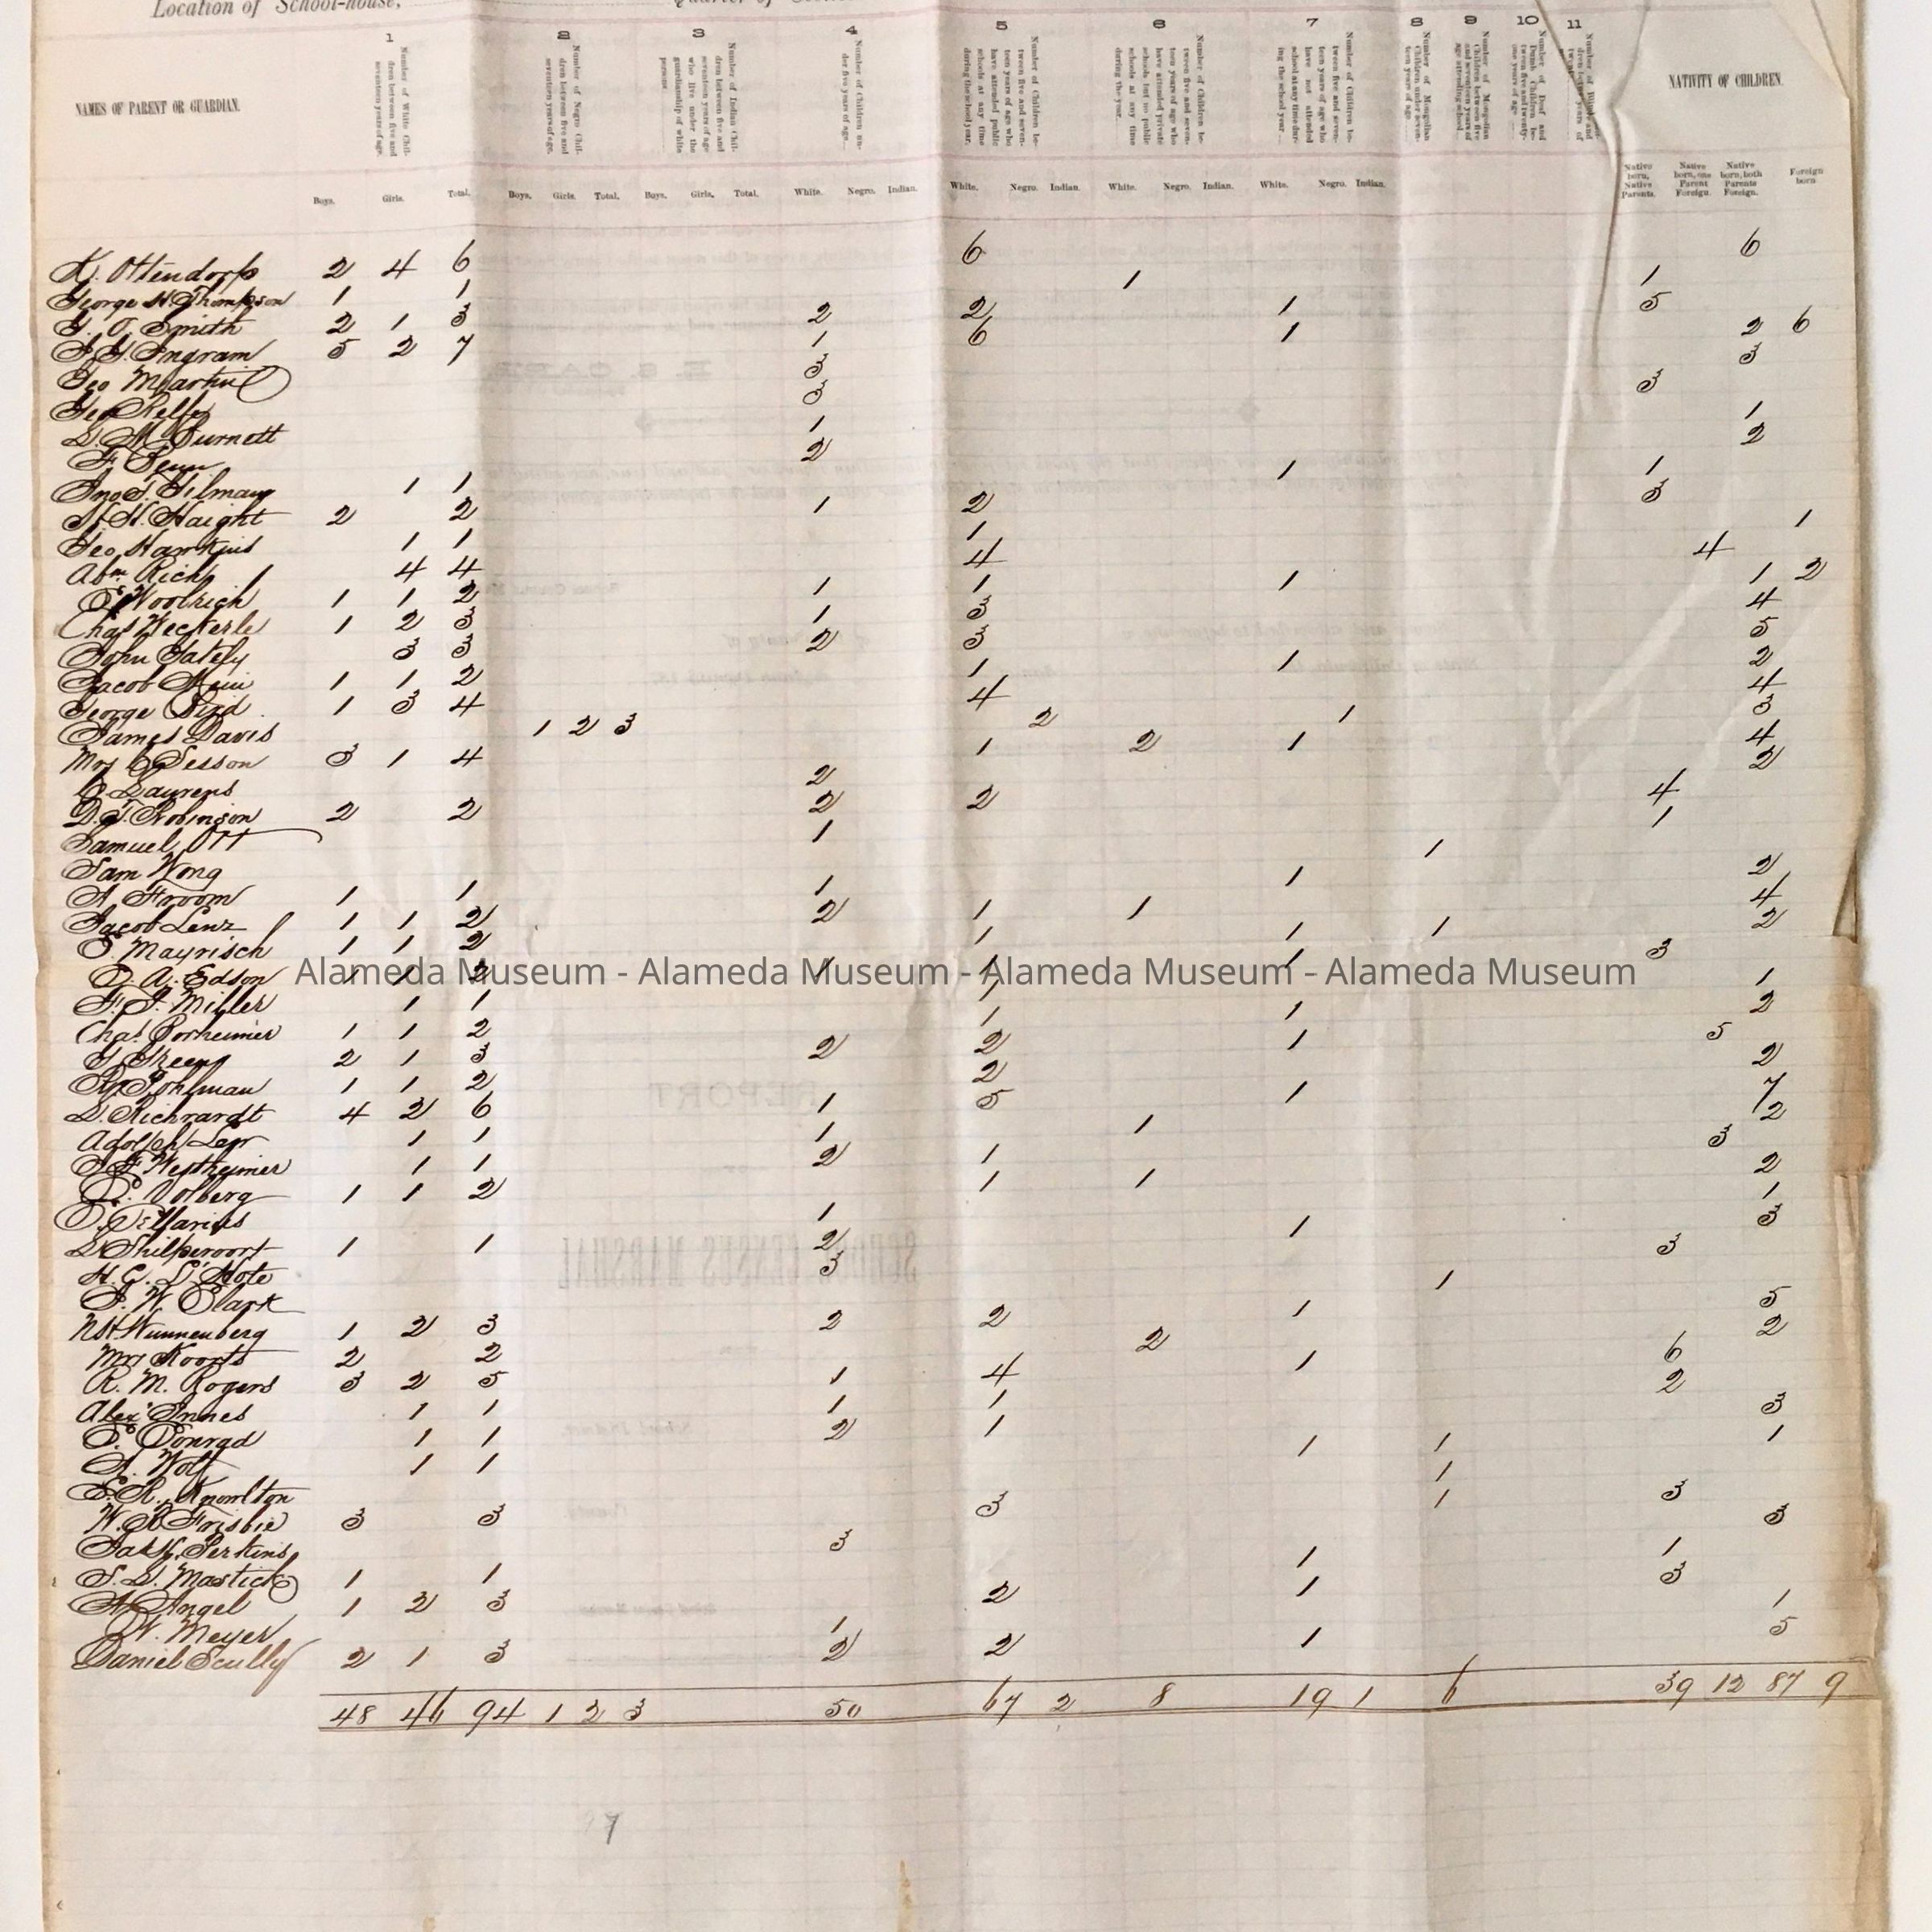 Location of School-house,
Quarter of
1 2 3 4 5 6 7 8 9 10 11
NAMES OF PARENT OR GUARDIAN.
Number of White Children between five and seventeen years of age.
Number of Negro Children between five and seventeen years of age.
Number of Indian Children between five and seventeen years of age who live under the guardianship of white persons
Number of Children under five years of age
Number of Children between five and seventeen years of age who have attended public schools at any time during the school year.
Number of Children between five and seventeen years of age who have attended private schools but no public schools at any time during the year.
Number of Children between five and seventeen years of age who have not attended school at any time during the school year
Number of Mongolian Children under seventeen years of age
Number of Mongolian Children between five and seventeen years of age attending school
Number of Deaf and Dumb Children between five and twenty-one years of age
NATIVITY OF CHILDREN.
Boys. Girls. Total. Boys. Girls. Total. Boys. Girls. Total. White. Negro. Indian. White. Negro. Indian. White. Negro. Indian. White. Negro. Indian. Native born, Native Parents. Native born, one Parent Foreign. Native born, both Parents Foreign. Foreign born
K. Ottendorp 2 4 6 6 6
George H. Thompson 1 1 1 1
G. O. Smith 2 1 3 2 2 1 5
Ingram 5 2 7 1 6 1 2 6
Geo Martin 3 3
Geo Relfe 3 3
Burnett 1 1
2 2
Gilman 1 1 1 1
H. H. Haight 2 2 1 2 3
Geo. Hawkins 1 1 1 1
Abm. Rich 4 4 4 4
Woolrich 1 1 2 1 1 1 1 2
Chas Heckerle 1 2 3 1 3 4
John Gately 3 3 2 3 5
Jacob 1 1 2 1 1 2
George Bird 1 3 4 4 4
James Davis 1 2 3 2 1 3
Mrs Sesson 3 1 4 1 2 1 4
Laurens 2 2
D. T. Robinson 2 2 2 2 4
Samuel Ott 1 1
Sam Wong 1
A Stroom 1 1 1 1 2
Jacob Lenz 1 1 2 2 1 1 4
Mayrisch 1 1 2 1 1 1 2
A. Edson 1 1 2 1 1 1 3
F. J. Miller 1 1 1 1
Chas. Borheimer 1 1 2 1 1 2
Green 2 1 3 2 2 1 5
Pohlman 1 1 2 2 2
Richrardt 4 2 6 1 5 1 7
Adolph 1 1 1 1 2
Westheimer 1 1 2 1 3
Volberg 1 1 2 1 1 2
1 1
Shilpervort 1 1 2 1 3
H. G. L'Hote 3 3
W. Clark 1
Wunnenberg 1 2 3 2 2 1 5
Mrs Koorts 2 2 2 2
R. M. Rogers 3 2 5 1 4 1 6
Alex Innes 1 1 1 1 2
Conrad 1 1 2 1 3
Wolf 1 1 1 1 1
R. Knowlton 1
W. R Frisbie 3 3 3 1 3
Perkins 3 3
Mastick 1 1 1 1
A Angel 1 2 3 2 1 3
W. Meyer 1 1
Daniel Scully 2 1 3 2 2 1 5
48 46 94 1 2 3 50 67 2 8 19 1 6 39 12 87 9
7
Alameda Museum - Alameda Museum - Alameda Museum - Alameda Museum